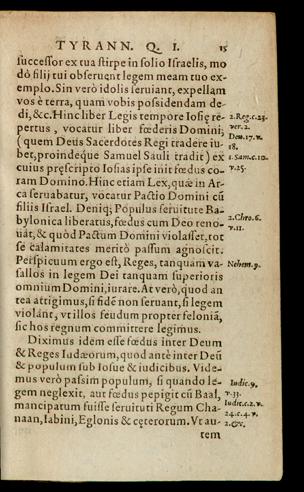 TYRANN. Q. I. 15
successor ex tua stirpe in solio Israelis, mo
dò filij tui obseruẽt legem meam tuo ex-
emplo. Sin verò idolis seruiant, expellam
vos è terra, quam vobis possidendam de-
di, &c. Hinc liber Legis tempore Iosię re-
pertus, vocatur liber fœderis Domini,
(quem Deus Sacerdotes Regi tradere iu-
bet, proindeque Samuel Sauli tradit) ex
cuius pręscripto Iosias ipse init fœdus co-
ram Domino. Hinc etiam Lex, quæ in Ar-
ca seruabatur, vocatur Pactio Domini cũ
filiis Israel. Deniq; Populus seruitute Ba-
bylonica liberatus, fœdus cum Deo reno-
uãt, & quòd Pactum Domini violasset, tot
se calamitates meritò passum agnoscit.
Perspicuum ergo est, Reges, tanquam va-
sallos in legem Dei tanquam superioris
omnium Domini, iurare. At verò, quod an
tea attigimus, si fidẽ non seruant, si legem
violãnt, vt illos feudum propter feloniã,
sic hos regnum committere legimus.
Diximus idem esse fœdus inter Deum
& Reges Iudæorum, quod antè inter Deũ
& populum sub Iosue & iudicibus. Vide-
mus verò passim populum, si quando le-
gem neglexit, aut fœdus pepigit cũ Baal,
mancipatum fuisse seruituti Regum Cha-
naan, Iabini, Eglonis & cęterorum. Vt au-
tem
2. Reg. c. 23.
ver. 2.
Deu. 17. v.
18.
1. Sam. c. 10.
v. 25.
2. Chro. 6.
v. 11.
Nehem. 9.
Iudic. 9.
v. 33.
Iudic. c. 2. v.
2. &c.